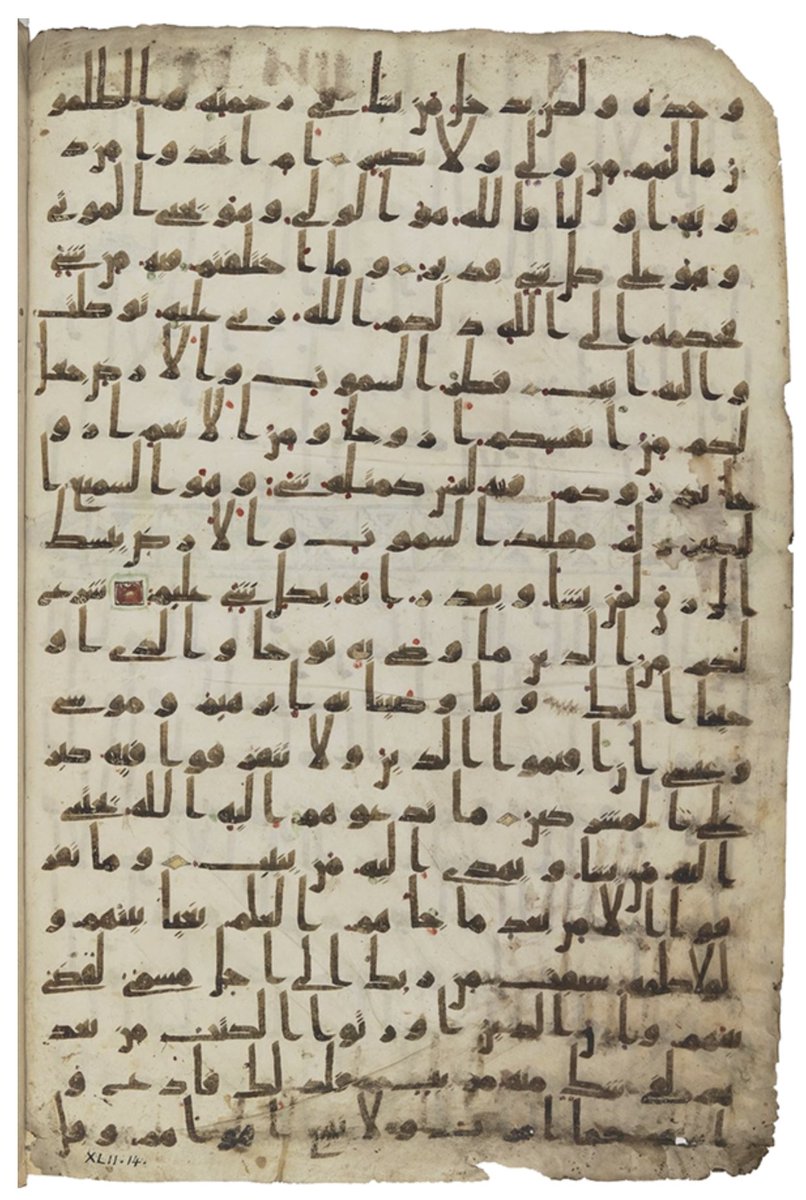 وحدة ولكن يدخل من يشا في رحمته والظلمو
ن ما لهم من ولي ولا نصير ام اتخذوا من د
ونه اوليا فالله هو الولي وهو يحي الموتى
وهو على كل شي قدير وما اختلفتم فيه من شي
فحكمه الى الله ذلكم الله ربي عليه توكلت
واليه انيب فطر السموت والارض جعل
لكم من انفسكم ازوجا ومن الانعم ازو
جا يذروكم فيه ليس كمثله شي وهو السميع ا
لبصير له مقليد السموت والارض يبسط
الرزق لمن يشا ويقدر انه بكل شي عليم شرع
لكم من الدين ما وصى به نوحا والذي او
حينا اليك وما وصينا به ابرهيم وموسى
وعيسى ان اقيموا الدين ولا تتفرقوا فيه كبر
على المشركين ما تدعوهم اليه الله يجتبي
اليه من يشا ويهدي اليه من ينيب وما تفر
قوا الا من بعد ما جاهم العلم بغيا بينهم و
لولا كلمة سبقت من ربك الى اجل مسمى لقضي
بينهم وان الذين اورثوا الكتب من بعد
هم لفي شك منه مريب فلذلك فادع و
استقم كما امرت ولا تتبع اهواهم وقل
XLII.14.